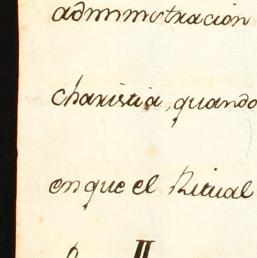 administracion
charistia, quando
en que el Ritual
II